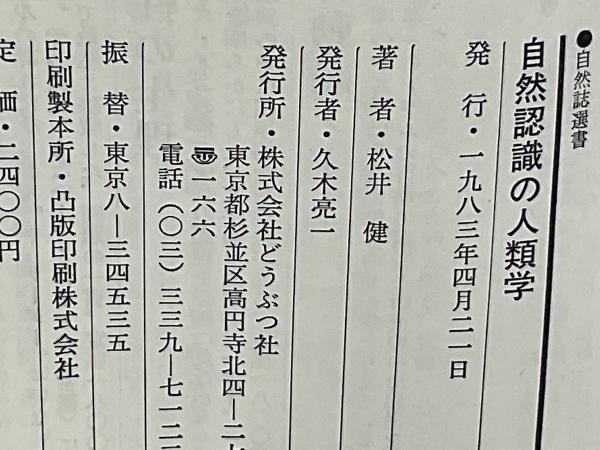 ●自然誌選書
自然認識の人類学
発行・一九八三年四月二一日
著者・松井 健
発行者・久木亮一
発行所・株式会社どうぶつ社
東京都杉並区高円寺北四—二七
〒一六六
電話(〇三)三三九—七一二
振替・東京八—三四五三五
印刷製本所・凸版印刷株式会社
定価・二四〇〇円